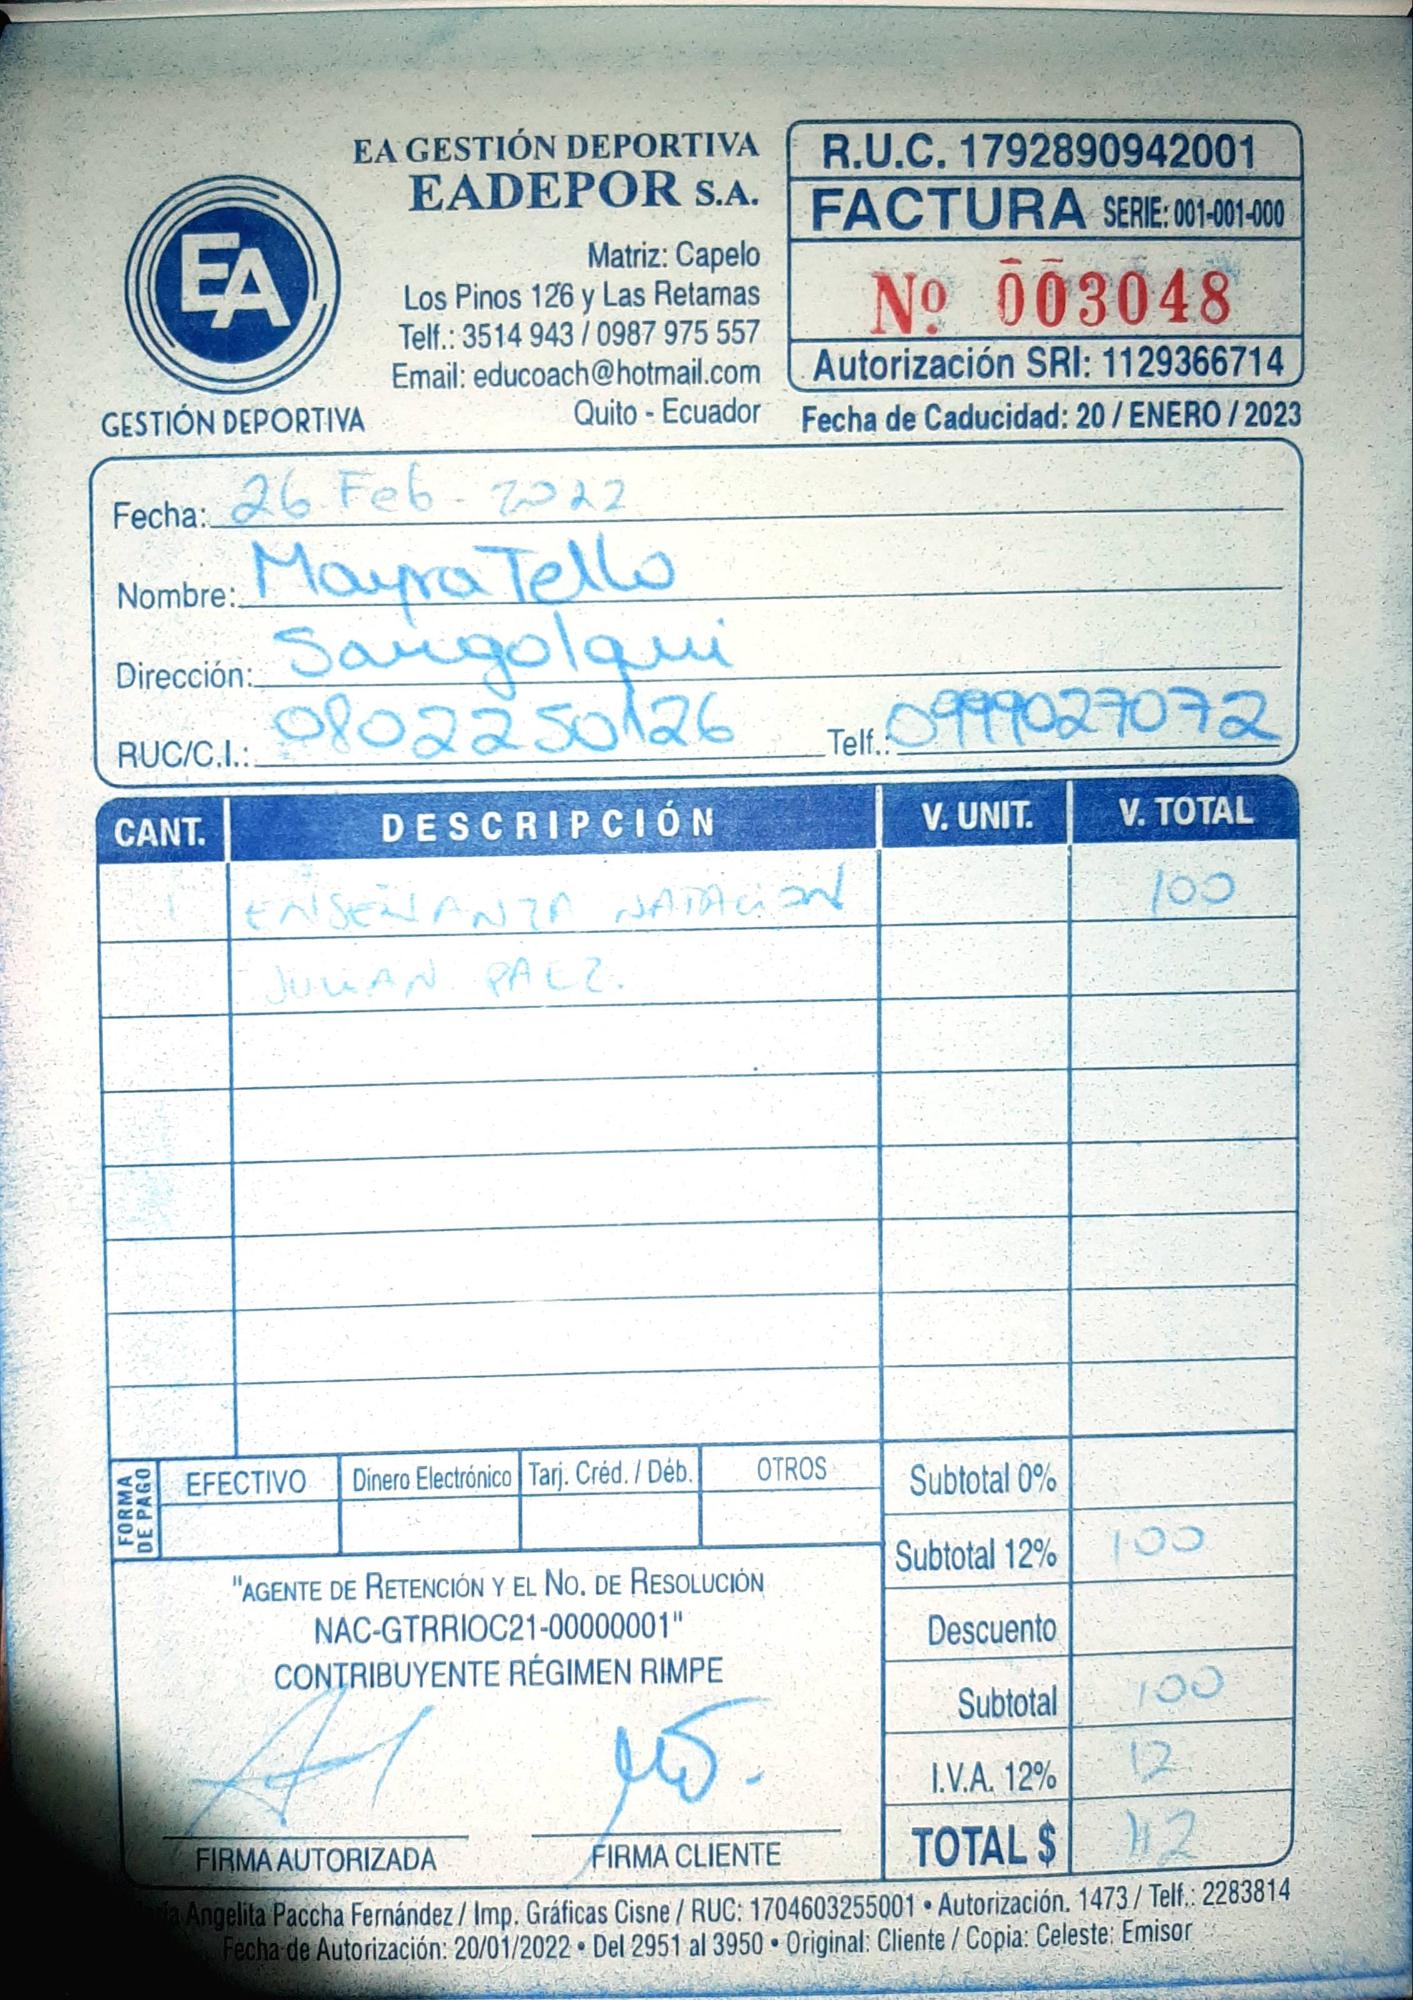 EA GESTIÓN DEPORTIVA
EADEPOR S.A.
EA
GESTIÓN DEPORTIVA
Matriz: Capelo
Los Pinos 126 y Las Retamas
Telf.: 3514 943 / 0987 975 557
Email: educoach@hotmail.com
Quito - Ecuador
R.U.C. 1792890942001
FACTURA SERIE: 001-001-000
Nº 003048
Autorización SRI: 1129366714
Fecha de Caducidad: 20 / ENERO / 2023
Fecha: 26 Feb - 2022
Nombre: Mayra Tello
Dirección: Sangolqui
RUC/C.I.: 0802250126 Telf.: 0999027072
CANT. DESCRIPCIÓN V. UNIT. V. TOTAL
1 ENSEÑANZA NATACION 100
JULIAN PAEZ.
FORMA DE PAGO
EFECTIVO Dinero Electrónico Tarj. Créd. / Déb. OTROS
Subtotal 0%
Subtotal 12% 100
Descuento
Subtotal 100
I.V.A. 12% 12
TOTAL $ 112
"AGENTE DE RETENCIÓN Y EL NO. DE RESOLUCIÓN
NAC-GTRRIOC21-00000001"
CONTRIBUYENTE RÉGIMEN RIMPE
FIRMA AUTORIZADA FIRMA CLIENTE
Angelita Paccha Fernández / Imp. Gráficas Cisne / RUC: 1704603255001 • Autorización. 1473 / Telf.: 2283814
Fecha de Autorización: 20/01/2022 • Del 2951 al 3950 • Original: Cliente / Copia: Celeste: Emisor